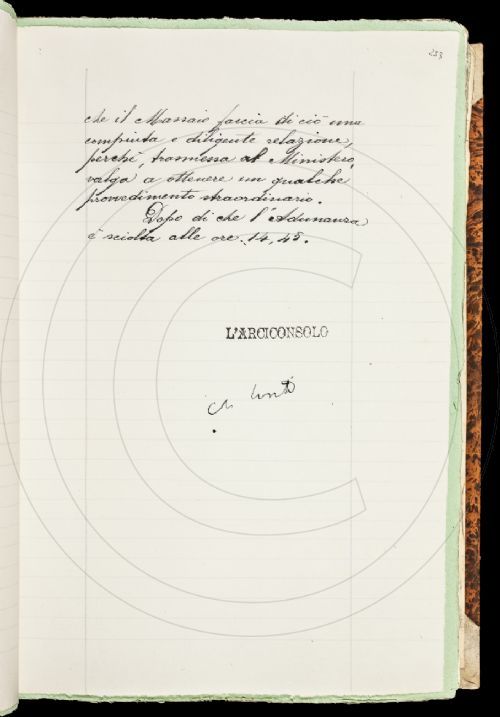 253
che il Massaio faccia di ciò una
compiuta e diligente relazione,
perché, trasmessa al Ministero,
valga a ottenere un qualche
provvedimento straordinario.
Dopo di che l'Adunanza
è sciolta alle ore 14,45.
L'ARCICONSOLO